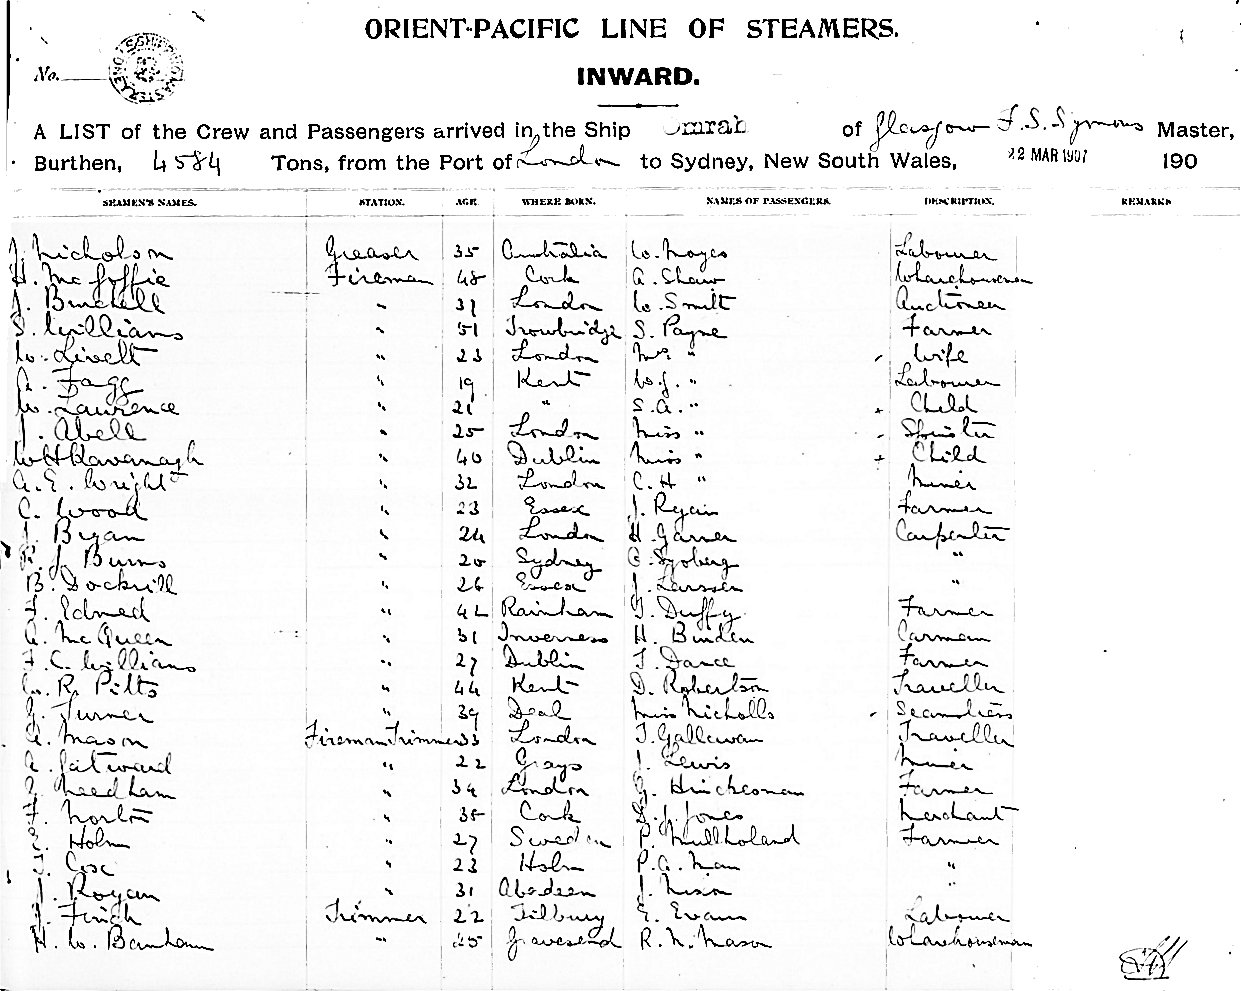 ORIENT-PACIFIC LINE OF STEAMERS.
No.
INWARD.
A LIST of the Crew and Passengers arrived in the Ship Omrah of Glasgow F. S. Symons Master,
Burthen, 4584 Tons, from the Port of London to Sydney, New South Wales, 22 MAR 1907 190
SEAMEN'S NAMES. STATION. AGE WHERE BORN. NAMES OF PASSENGERS. DESCRIPTION. REMARKS
J. Nicholson Greaser 35 Australia W. Noyes Labourer
H. McGoffie Fireman 48 Cork A. Shaw Wharehouseman
J. Burchell " 31 London W. Smilt Auctioneer
S. Williams " 51 Trowbridge S. Payne Farmer
W. Livett " 23 London Mrs " Wife
A. Fagg " 19 Kent W.J. " Labourer
W. Lawrence " 21 " S.A. " Child
J. Abell " 25 London Miss " Spinster
W H Kavanagh " 40 Dublin Miss " Child
A. E. Wright " 32 London C. H " Miner
C. Wood " 23 Essex J. Ryan Farmer
J. Bryan " 24 London H. Garner Carpenter
R. J. Burns " 20 Sydney C. Sjoberg "
B. Dockrill " 26 Essex J. Larssen "
J. Edmed " 42 Rainham J. Duffy Farmer
A. McQueen " 31 Inverness H. Binden Carman
F. C. Williams " 27 Dublin T. Dance Farmer
G. R. Pilts " 44 Kent D. Robertson Traveller
G. Turner " 39 Deal Miss Nicholls Seamstress
A. Mason Fireman Trimmer 33 London T. Gallewan Traveller
A. Gatward " 22 Grays J. Lewis Miner
Needham " 34 London G. Hinckesman Farmer
F. Norton " 35 Cork D. J. Jones Merchant
Holm " 27 Sweden P. Mullholand Farmer
Cox " 23 Holm P.A. Man "
J. Rogan " 31 Abadeen J. Nixon "
J. Finch Trimmer 22 Tilbury E. Evans Labourer
H. W. Barnham " 25 Gravesend R. N. Mason Wharehouseman